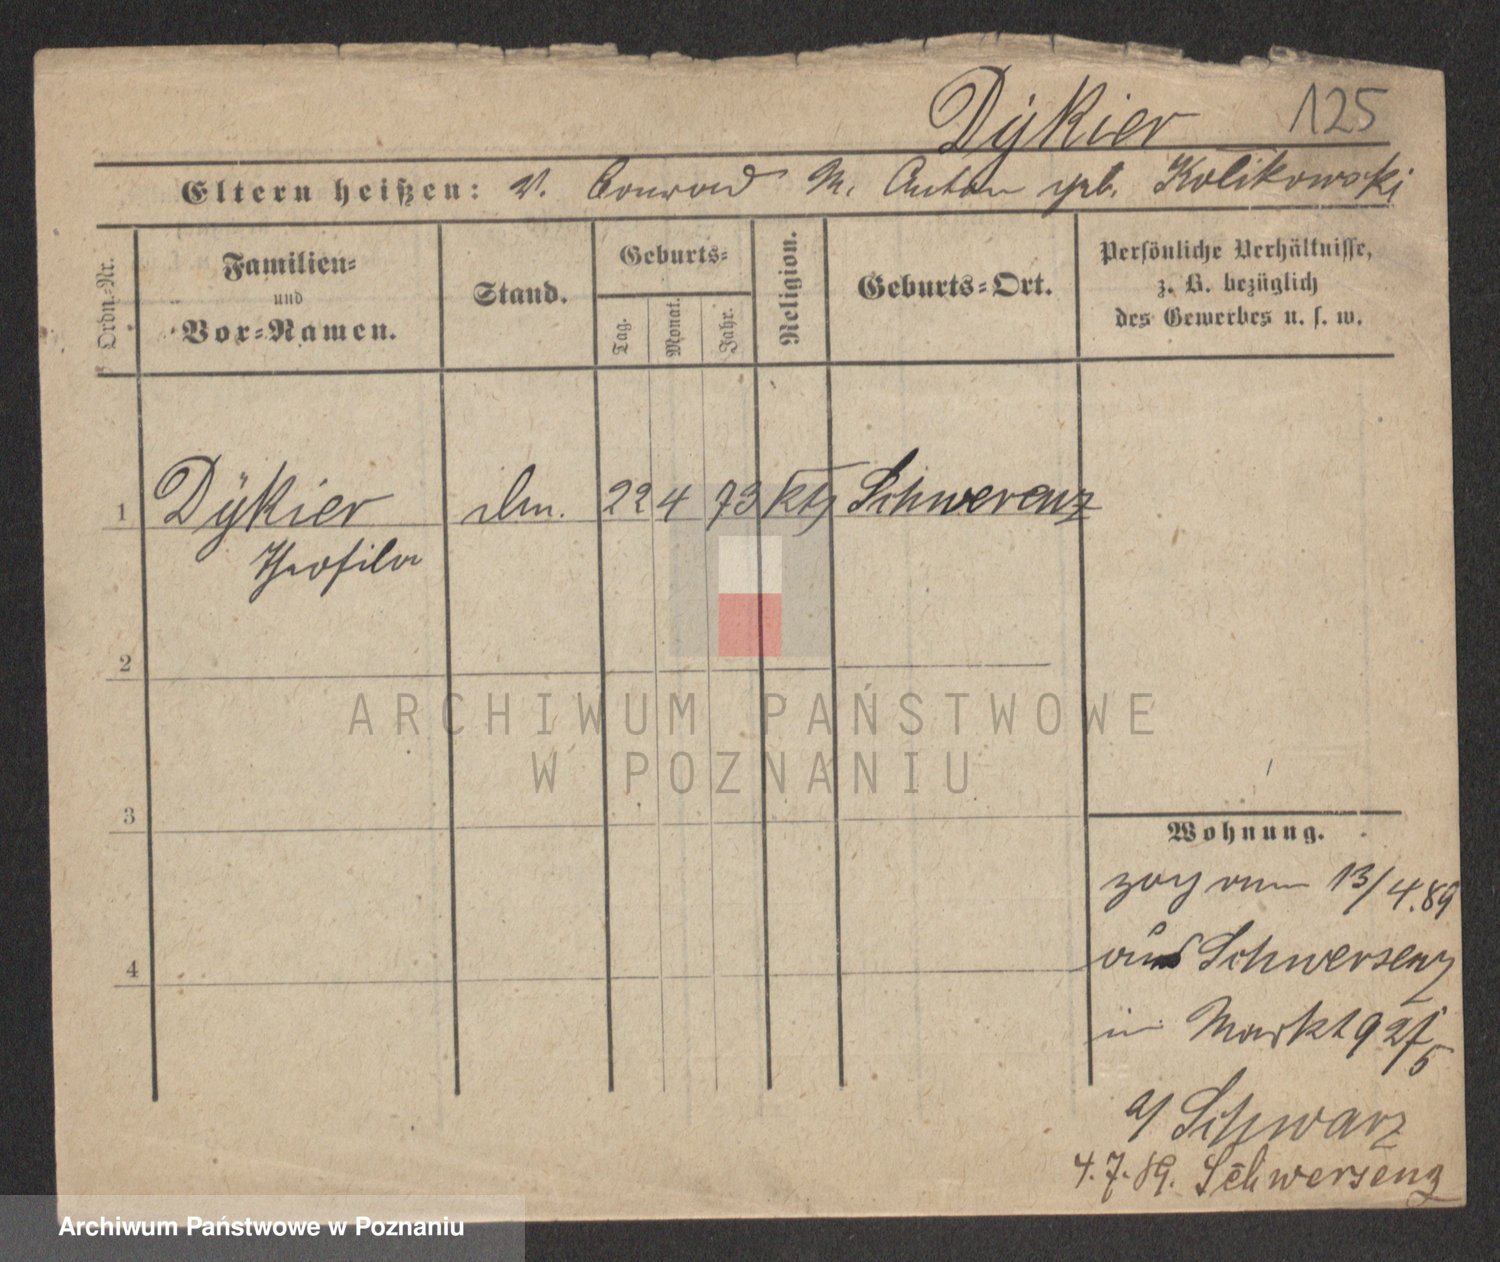 Dÿkier 125
Eltern heißen: V. Conrad M. Anton geb. Kolikowski
Ordn.-Nr.
Familien-
und
Vor-Namen.
Stand.
Geburts-
Tag.
Monat.
Jahr.
Religion.
Geburts-Ort.
Persönliche Verhältnisse,
z. B. bezüglich
des Gewerbes u. s. w.
1 Dÿkier 22 4 73 kth Schwerenz
Theofila
2
3
4
Wohnung.
zog am 13/4.89
aus Schwersenz
in Markt 92
a/ Schwarz
4.7.89. Schwersenz
ARCHIWUM PAŃSTWOWE
W POZNANIU
Archiwum Państwowe w Poznaniu